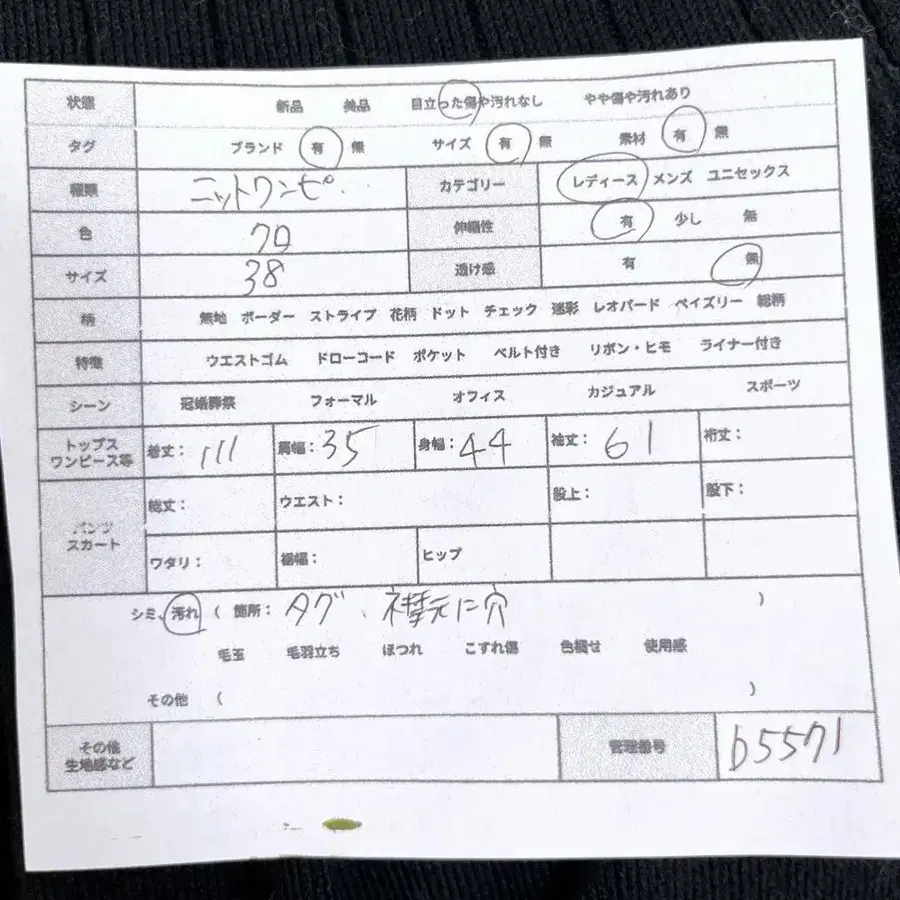 状態 新品 美品 目立った傷や汚れなし やや傷や汚れあり
タグ ブランド 有 無 サイズ 有 無 素材 有 無
種類 ニットワンピ. カテゴリー レディース メンズ ユニセックス
色 クロ 伸縮性 有 少し 無
サイズ 38 透け感 有 無
柄 無地 ボーダー ストライプ 花柄 ドット チェック 迷彩 レオパード ペイズリー 総柄
特徴 ウエストゴム ドローコード ポケット ベルト付き リボン・ヒモ ライナー付き
シーン 冠婚葬祭 フォーマル オフィス カジュアル スポーツ
トップス
ワンピース等 着丈: 111 肩幅: 35 身幅: 44 袖丈: 61 裄丈:
パンツ
スカート 総丈: ウエスト: 股上: 股下:
ワタリ: 裾幅: ヒップ
シミ、汚れ ( 箇所: タグ、襟元に穴 )
毛玉 毛羽立ち ほつれ こすれ傷 色褪せ 使用感
その他 ( )
その他
生地感など 管理番号 b5571